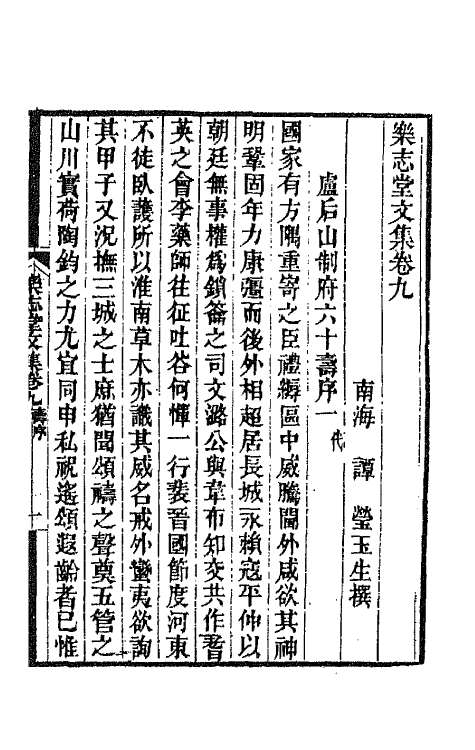 樂志堂文集卷九
南海 譚 瑩玉生撰
盧后山制府六十壽序一代
國家有方隅重寄之臣禮縟區中威騰閫外咸欲其神
明鞏固年力康彊而後外相超居長城永賴寇平仲以
朝廷無事權為鎖鑰之司文潞公與韋布知交共作耆
英之會李藥師往征吐谷何憚一行裴晉國節度河東
不徒臥護所以淮南草木亦識其威名戒外蠻夷欲詢
其甲子又況撫三城之士庶猶聞頌禱之聲奠五管之
山川實荷陶鈞之力尤宜同申私祝遙頌遐齡者已惟
樂志堂文集卷九 壽序 一